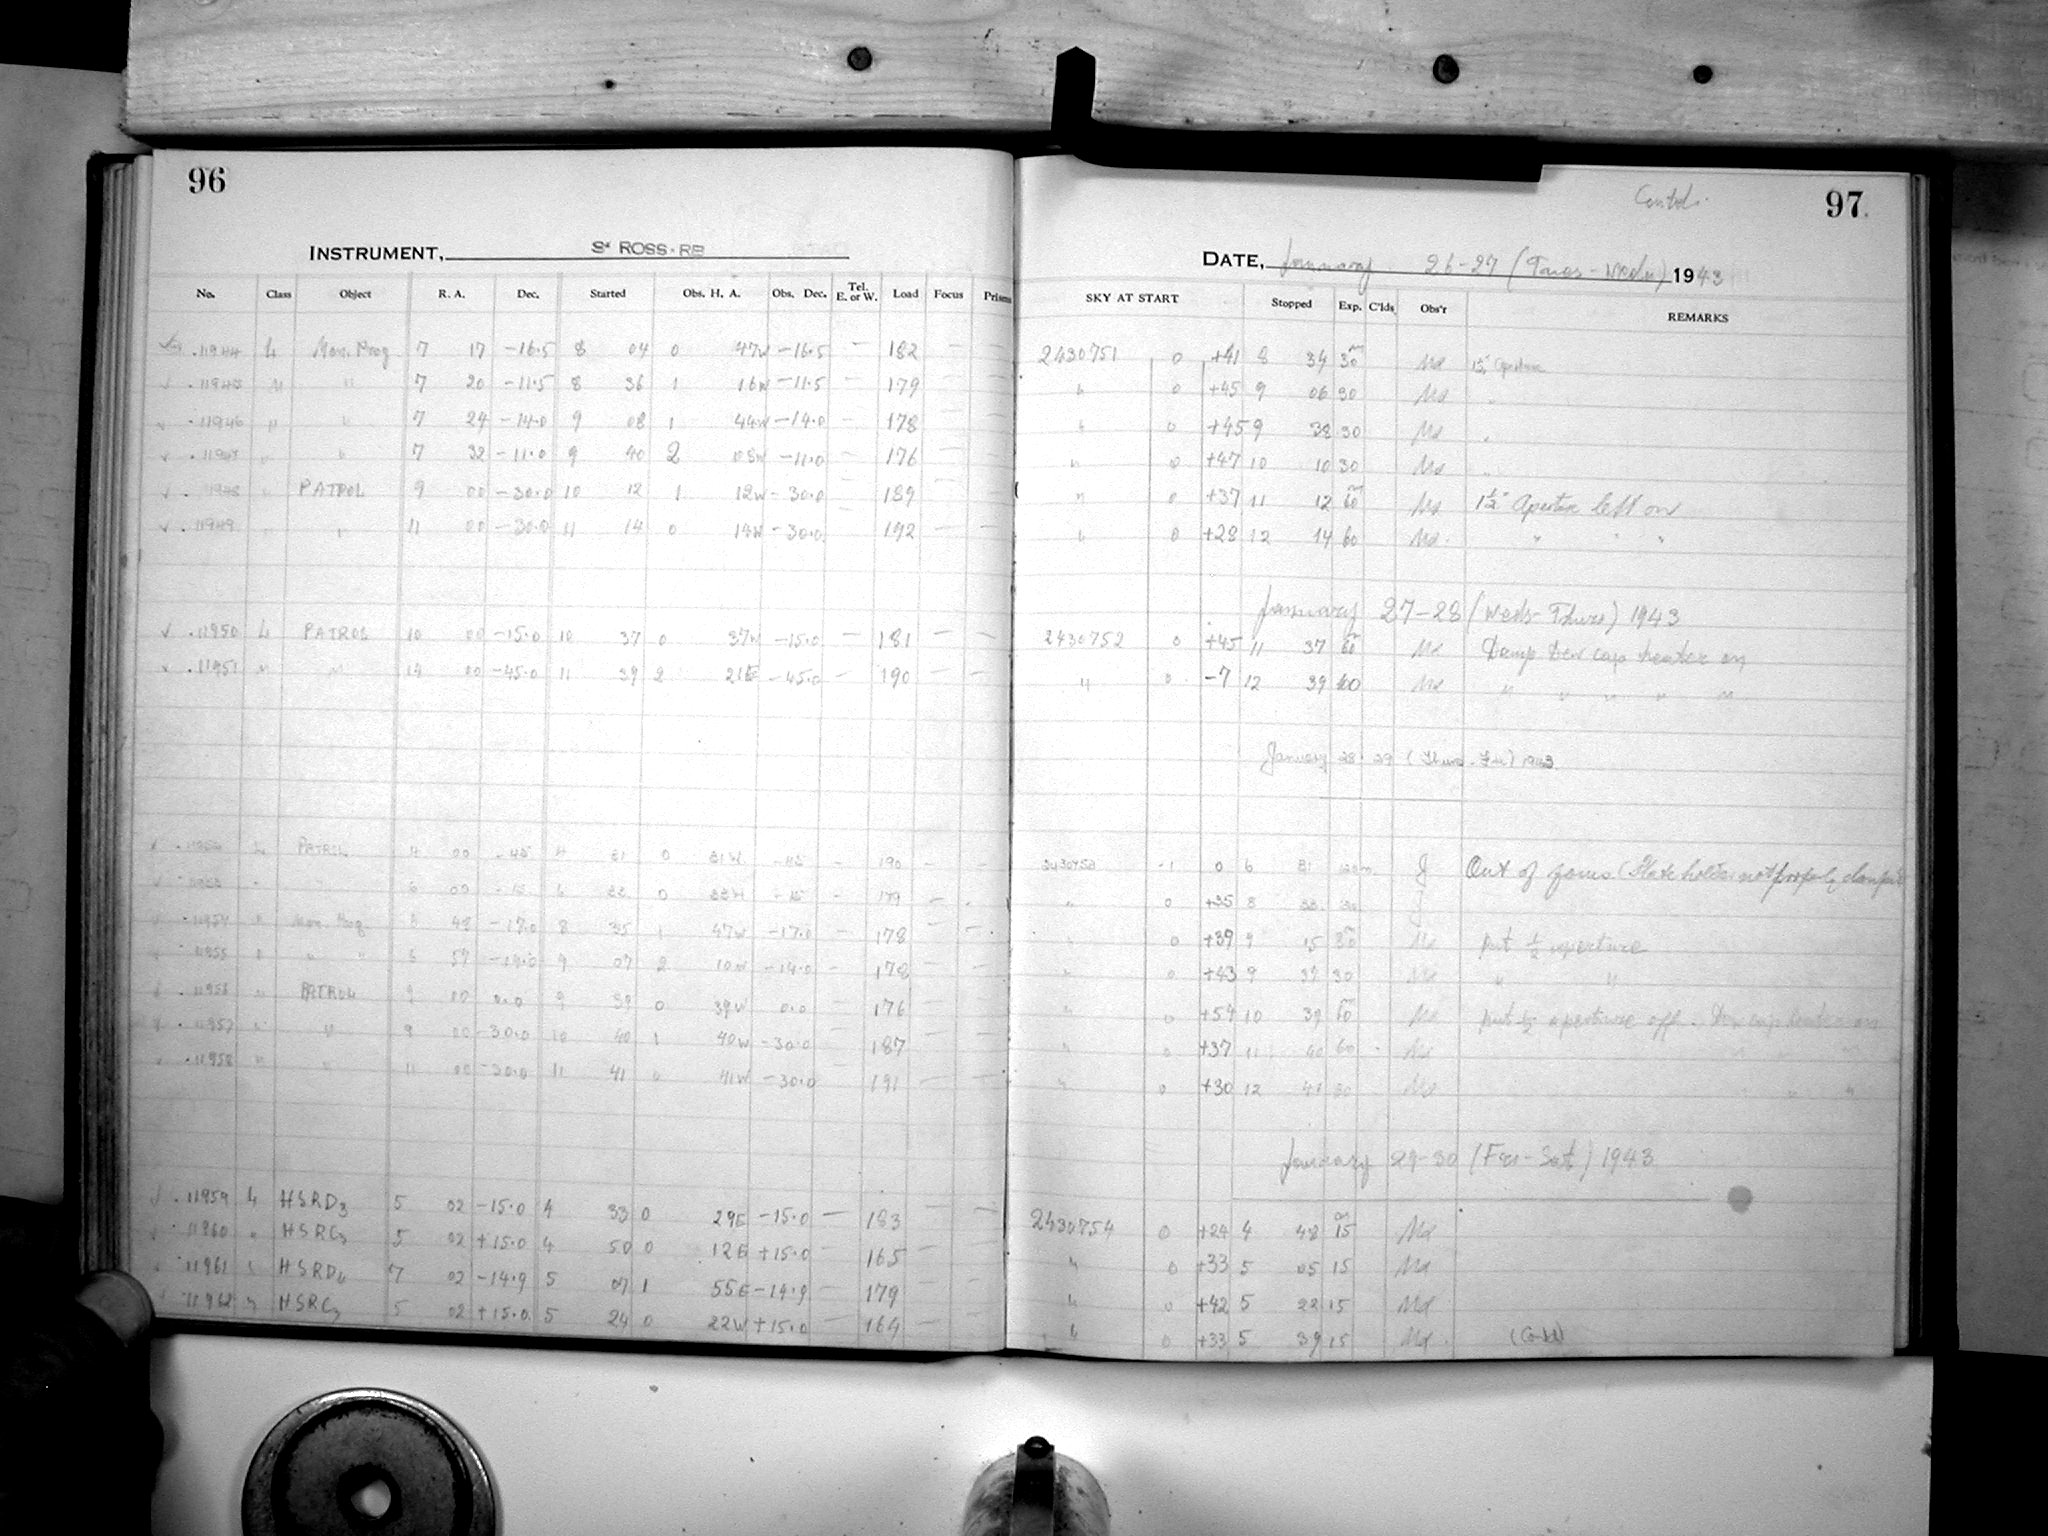 96
INSTRUMENT, ROSS-RB
No. Class Object R. A. Dec. Started Obs. H. A. Obs. Dec. Tel. E. or W. Load Focus Prism
11944 L Mon. Prog. 7 17 -16.5 8 04 0 47W -16.5 - 182 - -
11945 " " 7 20 -11.5 8 36 1 16W -11.5 - 179 - -
11946 " " 7 24 -14.0 9 08 1 44W -14.0 - 178 - -
11947 " " 7 32 -11.0 9 40 2 08W -11.0 - 176 - -
11948 " PATROL 9 00 -30.0 10 12 1 12W -30.0 - 189 - -
11949 " " 11 00 -30.0 11 14 0 14W -30.0 - 192 - -
11950 L PATROL 10 00 -15.0 10 37 0 37W -15.0 - 181 - -
11951 " " 14 00 -45.0 11 39 2 21E -45.0 - 190 - -
PATROL 4 00 -45 4 31 0 31W -45 - 190 - -
6 00 6 22 0 22W - 179 - -
11954 " Mon. Prog. 48 -17.0 8 35 1 47W -17.0 - 178 - -
11955 " " " 57 -14.0 9 07 2 10W -14.0 - 178 - -
11956 " PATROL 9 00 0.0 9 39 0 39W 0.0 - 176 - -
11957 " " 9 00 -30.0 10 40 1 40W -30.0 - 187 - -
11958 " " 11 00 -30.0 11 41 0 41W -30.0 - 191 - -
11959 L HSRD3 5 02 -15.0 4 33 0 29E -15.0 - 183 - -
11960 " HSRC3 5 02 +15.0 4 50 0 12E +15.0 - 165 - -
11961 " HSRD4 7 02 -14.9 5 07 1 55E -14.9 - 179 - -
11962 " HSRC3 5 02 +15.0 5 24 0 22W +15.0 - 164 - -
Contd. 97
DATE, January 26-27 (Tues-Weds) 1943
SKY AT START Stopped Exp. C'lds Obs'r REMARKS
2430751 0 +41 8 34 30m Md 1½" aperture
" 0 +45 9 06 30 Md "
" 0 +45 9 38 30 Md "
" 0 +47 10 10 30 Md "
" 0 +37 11 12 60m Md 1½" Aperture left on
" 0 +28 12 14 60 Md " " "
January 27-28 (Weds-Thurs) 1943
2430752 0 +45 11 37 60m Md Damp Dew cap heater on
" 0 -7 12 39 60 Md " " " " "
January 28-29 (Thurs-Fri) 1943
2430753 -1 0 6 31 120m J Out of focus (Plate holder not properly clamped
" 0 +35 8 J
" 0 +39 9 15 30m Md put ½ aperture
" 0 +43 9 37 30 Md " "
" 0 +54 10 39 60m Md put ½ aperture off. Dew cap heater on
" 0 +37 11 40 60 Md "
" 0 +30 12 41 Md " "
January 29-30 (Fri-Sat) 1943
2430754 0 +24 4 48 15m Md
" 0 +33 5 05 15 Md
" 0 +42 5 22 15 Md
" 0 +33 5 39 15 Md (Contd)